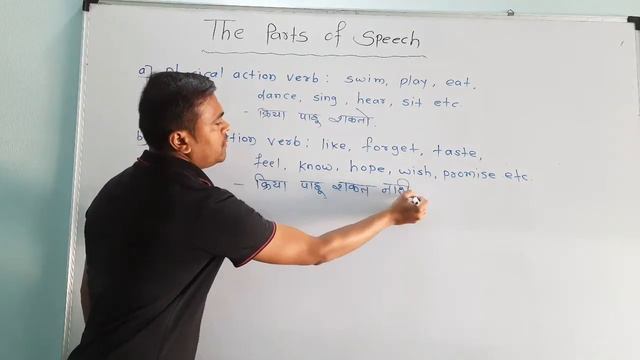 The Parts of Speech
a) Physical action verb: swim, play, eat,
dance, sing, hear, sit etc.
- क्रिया पाहू शकतो.
b) action verb: like, forget, taste,
feel, know, hope, wish, promise etc.
- क्रिया पाहू शकत नाही